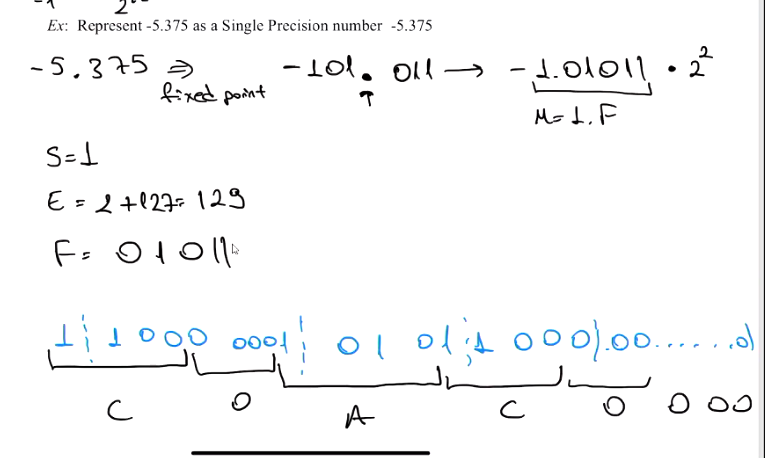 Ex: Represent -5.375 as a Single Precision number -5.375
-5.375 ⇒ -101.011 → -1.01011 • 2²
fixed point M=1.F
S=1
E = 2+127= 129
F= 01011
1 1 000 0 0001 01 01 1 000 .00......0
C 0 A C 0 0 00